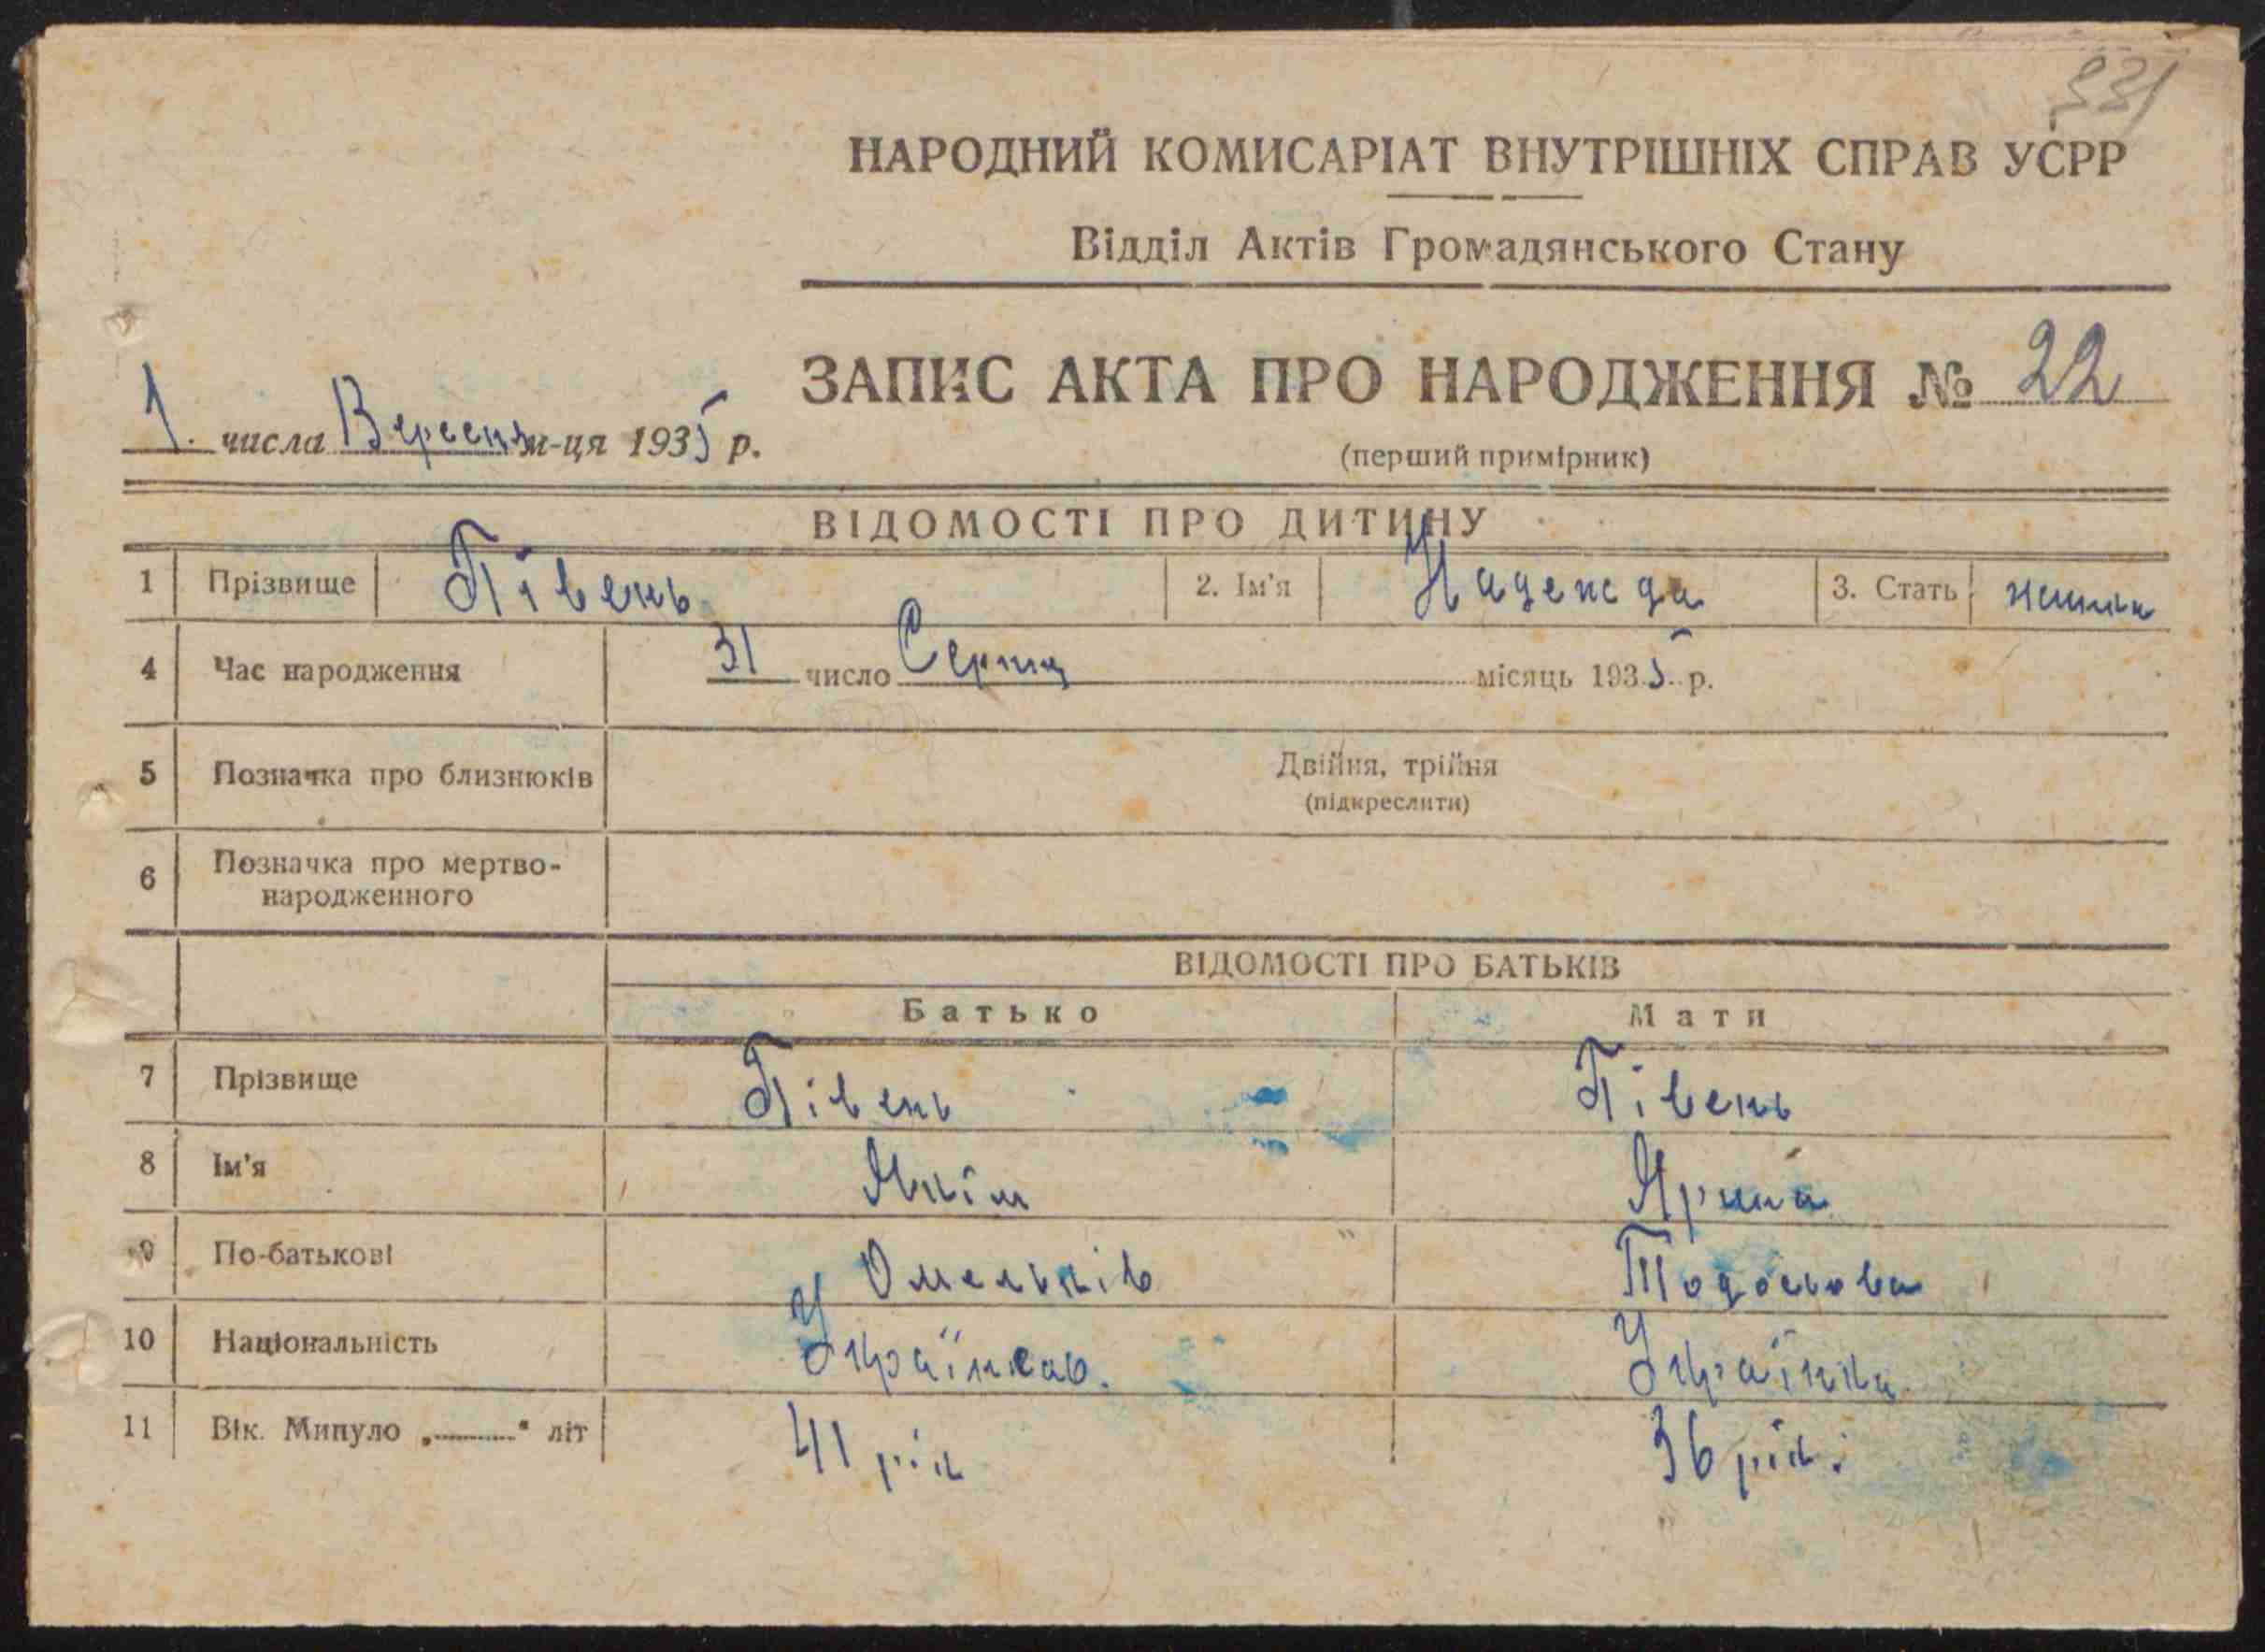 331
НАРОДНИЙ КОМИСАРІАТ ВНУТРІШНІХ СПРАВ УСРР
Відділ Актів Громадянського Стану
ЗАПИС АКТА ПРО НАРОДЖЕННЯ № 22
1. числа Вересня м-ця 1935 р.
(перший примірник)
ВІДОМОСТІ ПРО ДИТИНУ
1 Прізвище Півень 2. Ім'я Надежда 3. Стать
4 Час народження 31 число Серпня місяць 1935 р.
5 Позначка про близнюків Двійня, трійня
(підкреслити)
6 Позначка про мертво-
народженного
ВІДОМОСТІ ПРО БАТЬКІВ
Батько Мати
7 Прізвище Півень Півень
8 Ім'я Якім Ярина
9 По-батькові Омельків Тодосьова
10 Національність Українец. Українка
11 Вік. Минуло „ “ літ 41 рік 36 рік.